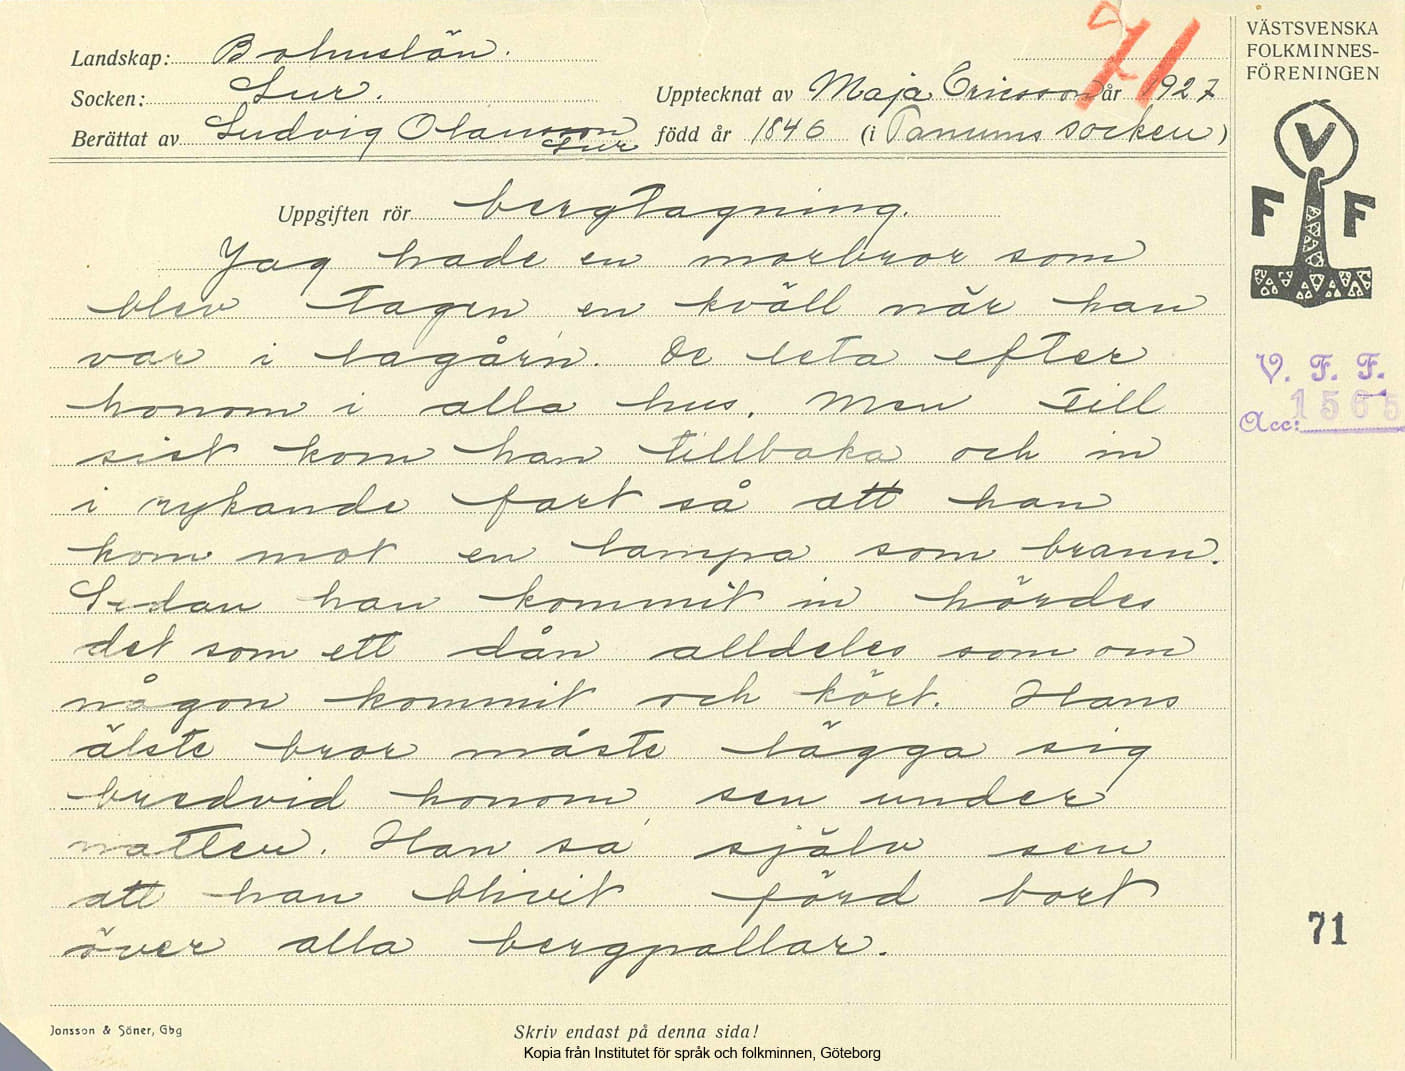 71
VÄSTSVENSKA
FOLKMINNES-
FÖRENINGEN
Landskap: Bohuslän.
Socken: Lur.
Upptecknat av Maja Ericsson år 1927
Berättat av Ludvig Olausson
Lur
född år 1846 (i Tanums socken)
V
F F
Uppgiften rör bergtagning.
Jag hade en morbror som
blev tagen en kväll när han
var i lagårn. De leta efter
honom i alla hus. Men till
sist kom han tillbaka och in
i rykande fart så att han
kom mot en lampa som brann.
Sedan han kommit in hördes
det som ett dån alldeles som om
någon kommit och kört. Hans
älste bror måste lägga sig
bredvid honom sen under
natten. Han sa själv sen
att han blivit förd bort
över alla bergpallar.
V. F. F.
Acc: 1565
71
Jonsson & Söner, Gbg
Skriv endast på denna sida!
Kopia från Institutet för språk och folkminnen, Göteborg